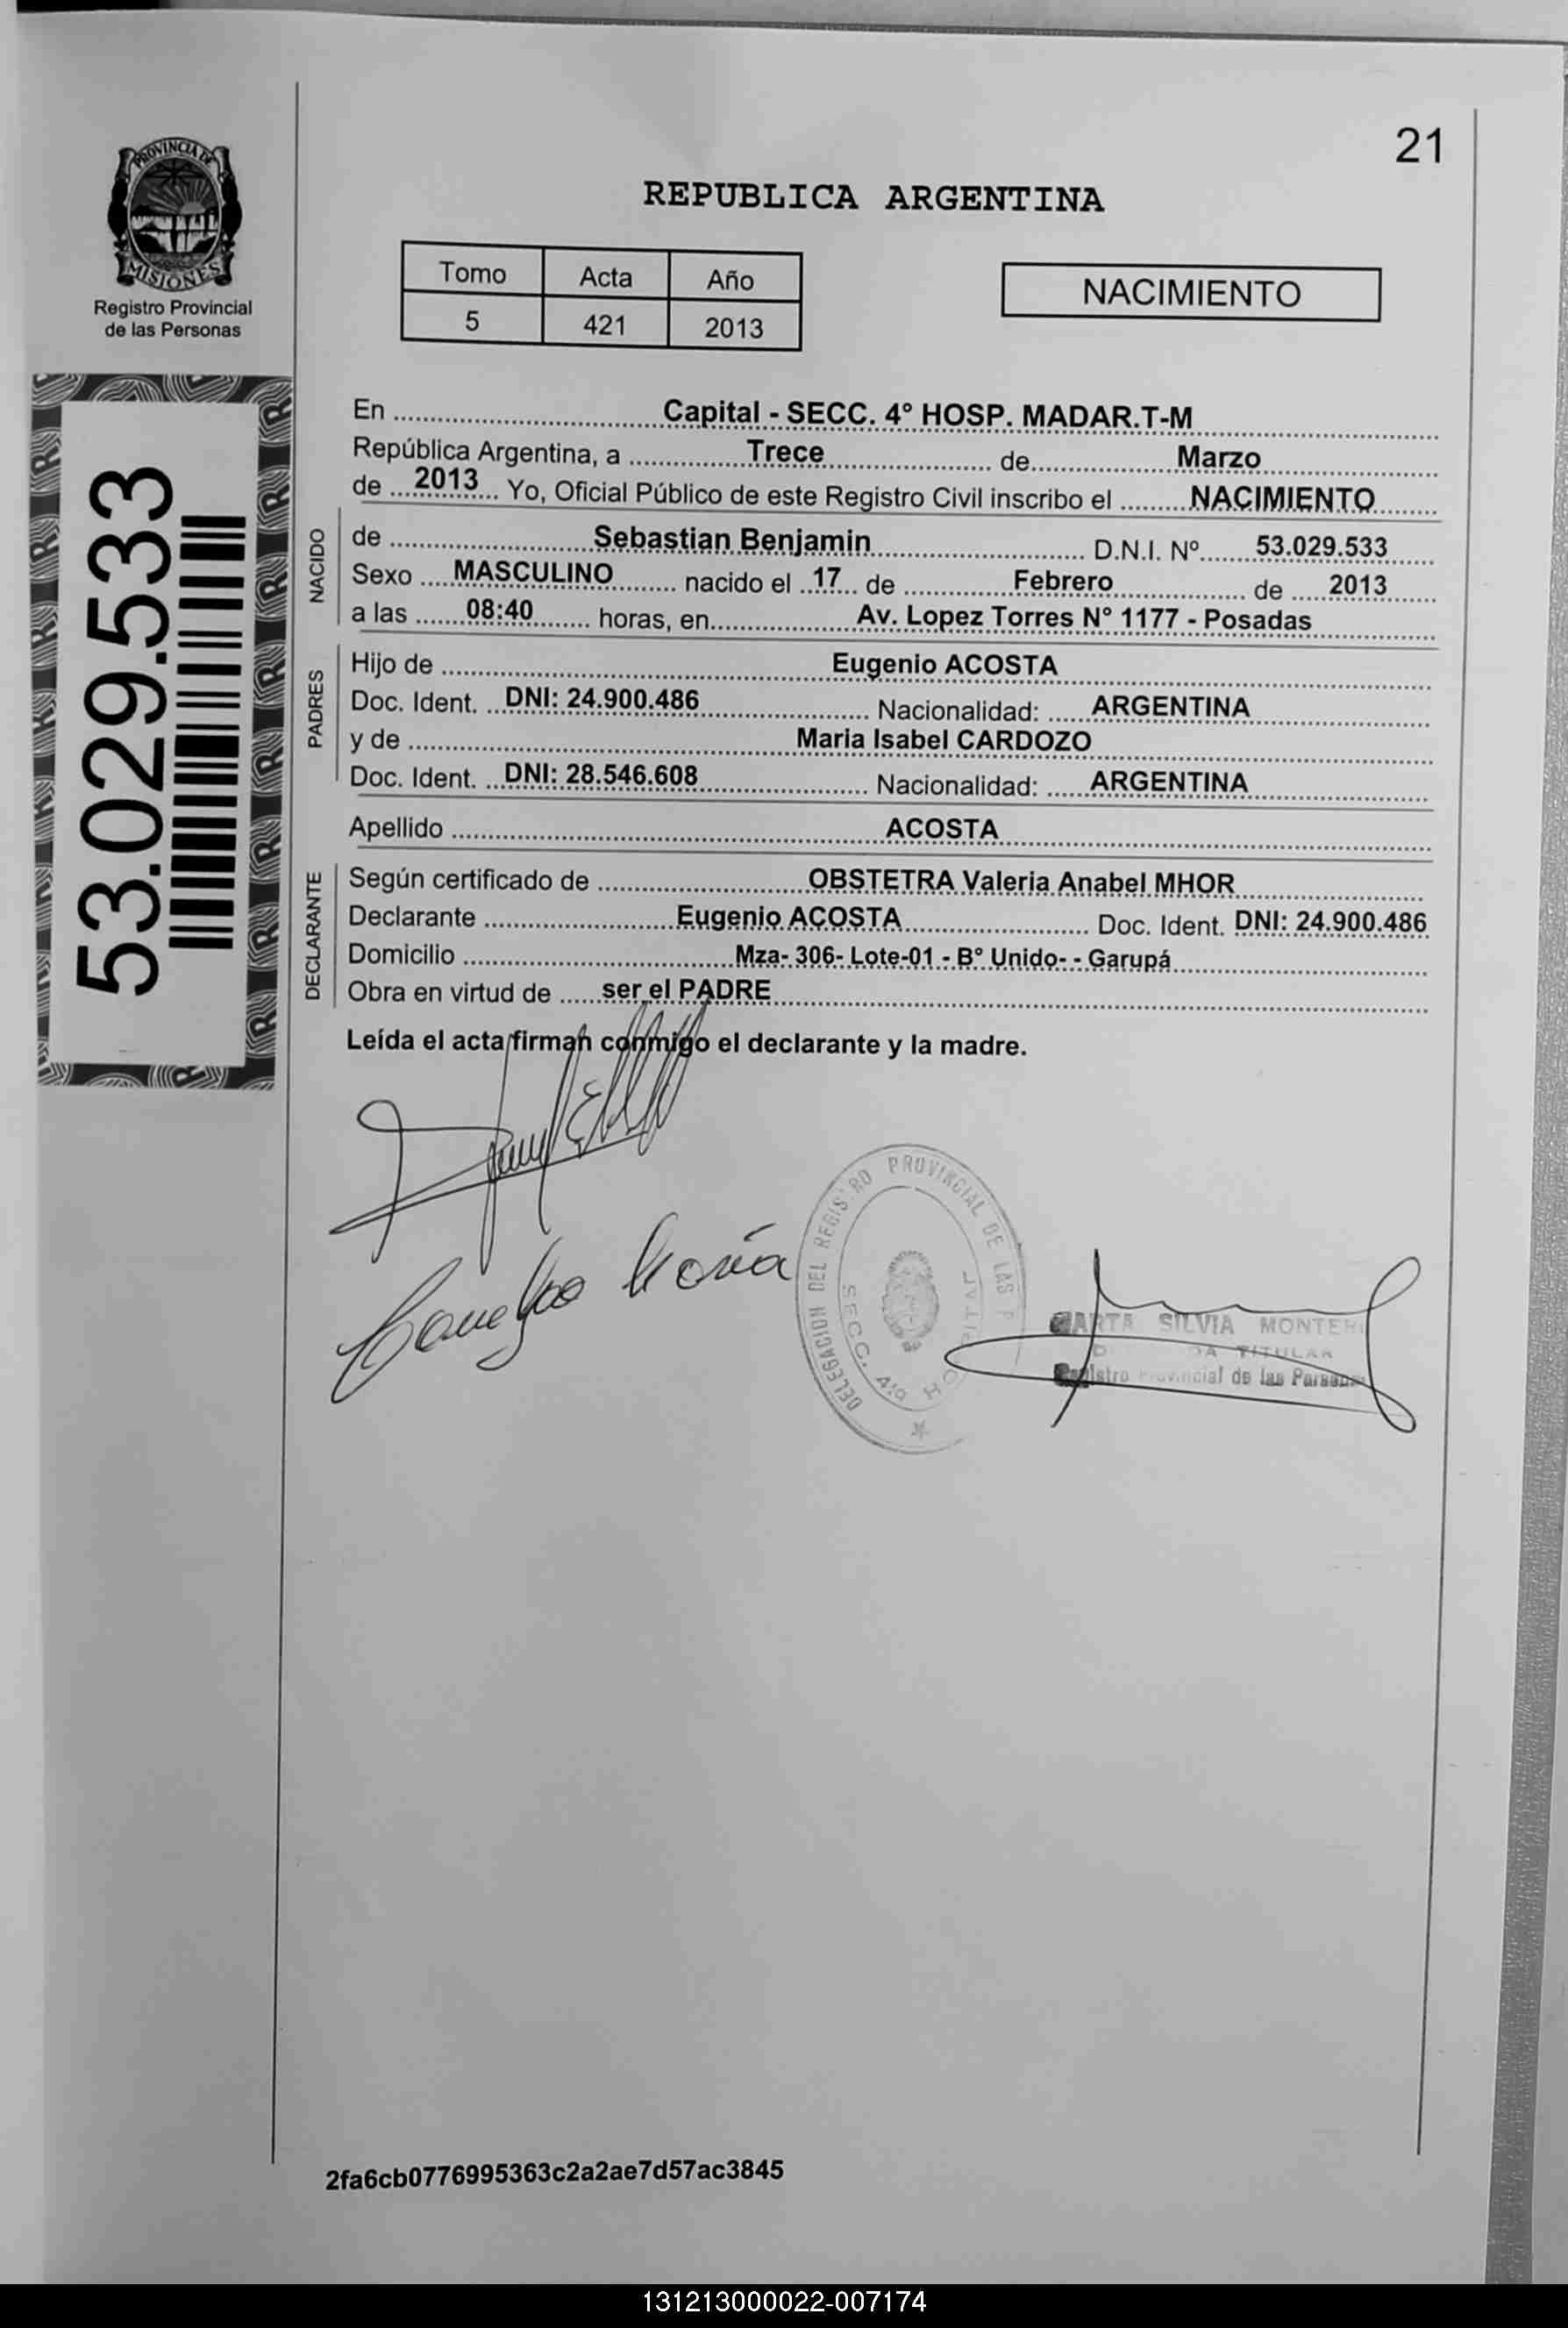 21
PROVINCIA DE
MISIONES
Registro Provincial
de las Personas
REPUBLICA ARGENTINA
Tomo Acta Año
5 421 2013
NACIMIENTO
53.029.533
En Capital - SECC. 4° HOSP. MADAR.T-M
República Argentina, a Trece de Marzo
de 2013 Yo, Oficial Público de este Registro Civil inscribo el NACIMIENTO
NACIDO
de Sebastian Benjamin D.N.I. Nº 53.029.533
Sexo MASCULINO nacido el 17 de Febrero de 2013
a las 08:40 horas, en Av. Lopez Torres N° 1177 - Posadas
PADRES
Hijo de Eugenio ACOSTA
Doc. Ident. DNI: 24.900.486 Nacionalidad: ARGENTINA
y de Maria Isabel CARDOZO
Doc. Ident. DNI: 28.546.608 Nacionalidad: ARGENTINA
Apellido ACOSTA
DECLARANTE
Según certificado de OBSTETRA Valeria Anabel MHOR
Declarante Eugenio ACOSTA Doc. Ident. DNI: 24.900.486
Domicilio Mza- 306- Lote-01 - B° Unido- - Garupá
Obra en virtud de ser el PADRE
Leída el acta firman conmigo el declarante y la madre.
María
DELEGACION DEL REGISTRO PROVINCIAL DE LAS P
SECC. 4ta HOSPITAL
MARTA SILVIA MONTER
TITULAR
Registro Provincial de las Personas
2fa6cb0776995363c2a2ae7d57ac3845
131213000022-007174